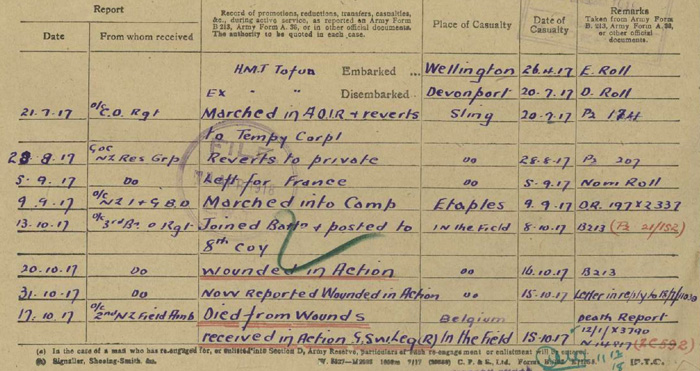 Report
Record of promotions, reductions, transfers, casualties, &c., during active service, as reported on Army Form B 213, Army Form A. 36, or in other official documents. The authority to be quoted in each case.
Place of Casualty
Date of Casualty
Remarks
Taken from Army Form B. 213, Army Form A. 36, or other official documents.
Date From whom received
H.M.T Tofua Embarked ... Wellington 26.4.17 E. Roll
Ex " Disembarked Devonport 20.7.17 D. Roll
21.7.17 o/c E.O. Rgt Marched in A.O.I.R + reverts Sling 20.7.17
to Tempy Corpl
28.8.17 GOC NZ Res Grp Reverts to private Do 28.8.17 P2 207
5.9.17 Do Left for France Do 5.9.17 Nom Roll
9.9.17 o/c NZ I + G B D Marched into Camp Etaples 9.9.17 D.R. 197 x 2337
13.10.17 o/c 3rd Bn O Rgt Joined Battn + posted to In the Field 8.10.17 B213 (P2 21/152)
8th Coy
20.10.17 Do Wounded in Action Do 16.10.17 B213
31.10.17 Do Now Reported Wounded in Action Do 15.10.17 Letter in reply to
17.10.17 o/c 2nd NZ Field Amb Died from Wounds Belgium Death Report
received in Action G.S.W. Leg (R) In the Field 15.10.17 12/1/X3790
(a) In the case of a man who has re-engaged for, or enlisted into Section D, Army Reserve, particulars of such re-engagement or enlistment will be entered.
(b) Signaller, Shoeing-Smith &c.
[P.T.O.